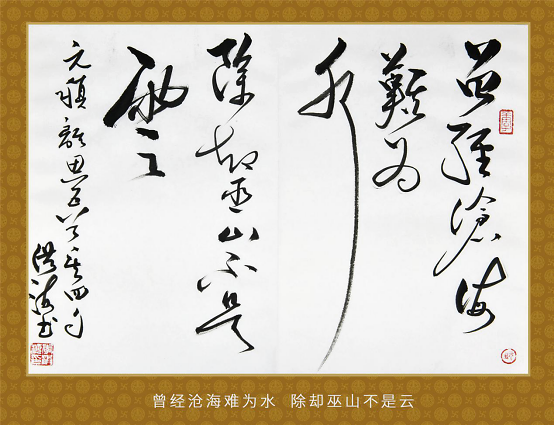 曾經滄海
難為
水
除却巫山不是
雲
元稹離思五首其四句
洪 书
曾经沧海难为水 除却巫山不是云